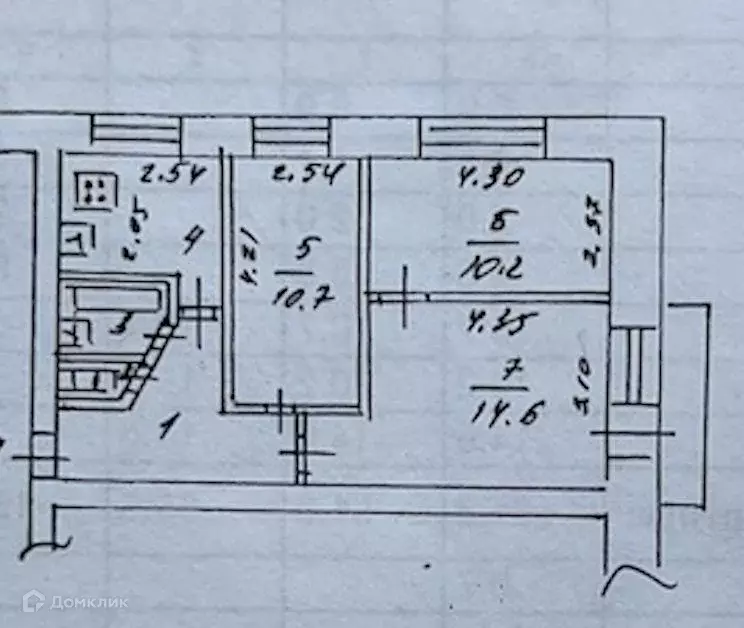 2.54
2.54
4.30
2.85
4
4.21
5
10.7
6
10.2
2.37
3
4.35
7
14.6
3.10
1
Домклик